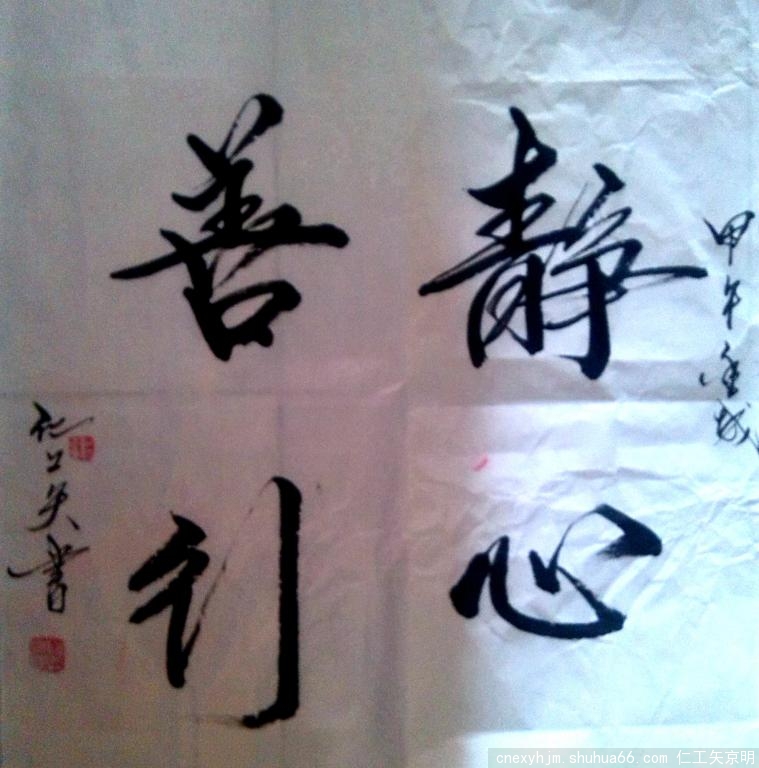 甲午
静心
善行
仁工矢書
cnexyhjm.shuhua66.com 仁工矢京明